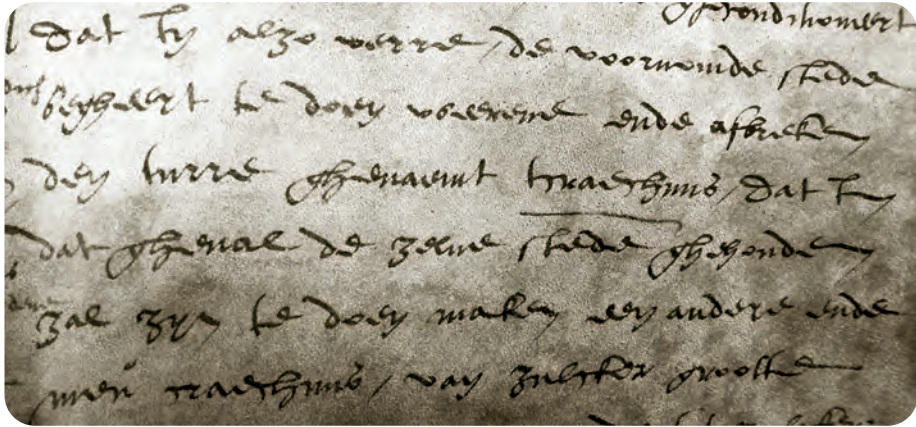 dat in alzo verre de voornoemde stede
begheert te doen weerene ende afbreken
den turre ghenaemt tcraechuus, dat in
dat gheval de zelve stede ghehouden
zal zijn te doen maken een andere ende
nieu craechuus, van zulcker grootte